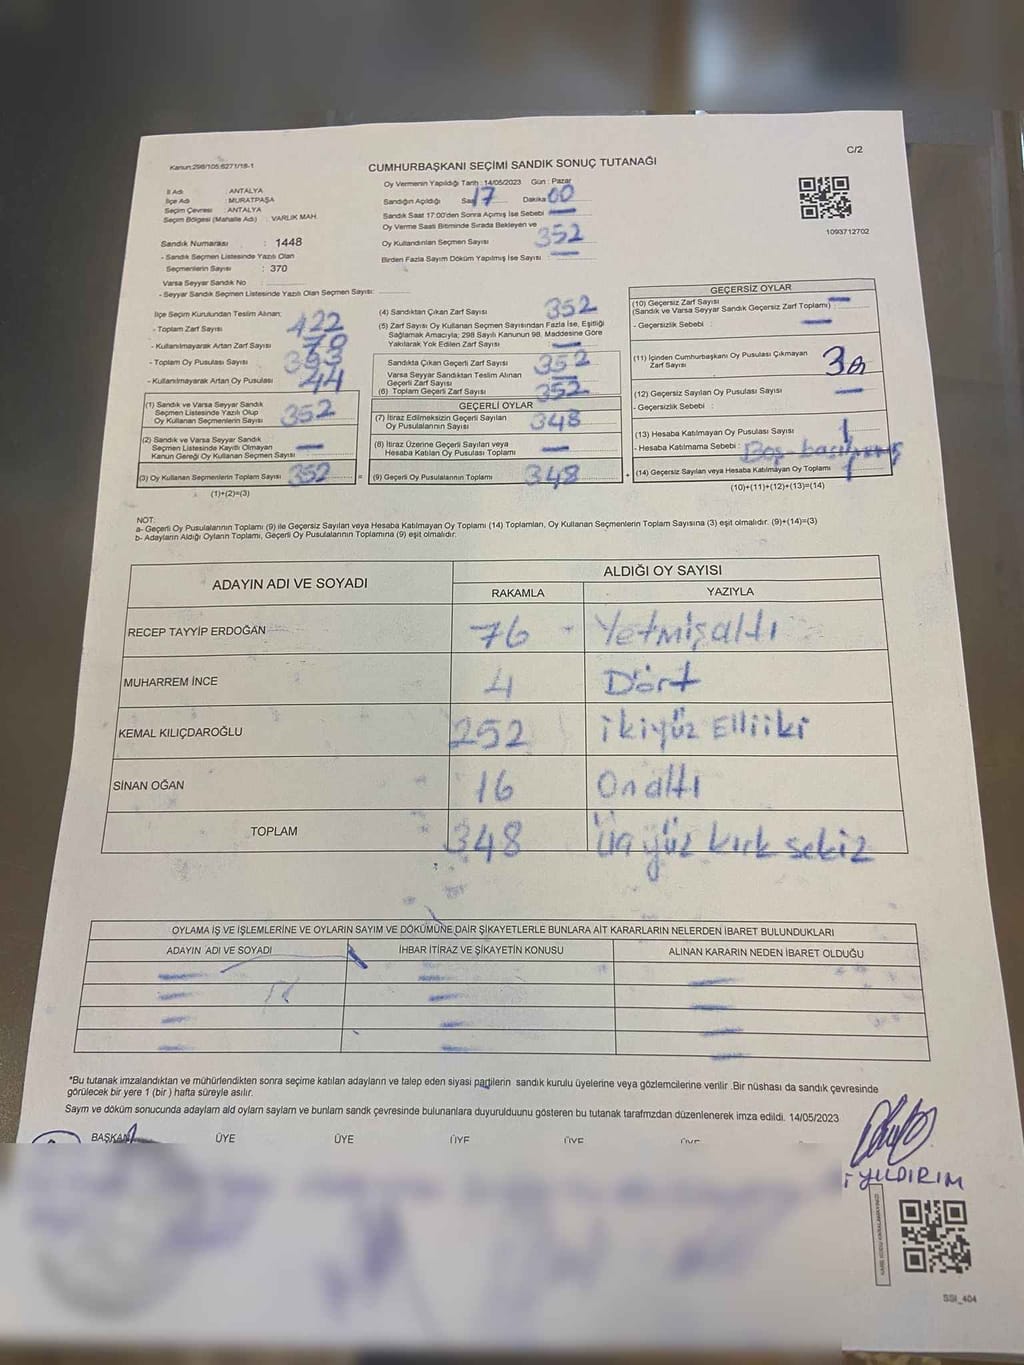 C/2
Kanun:298/105;6271/18-1
CUMHURBAŞKANI SEÇİMİ SANDIK SONUÇ TUTANAĞI
İl Adı : ANTALYA
İlçe Adı : MURATPAŞA
Seçim Çevresi : ANTALYA
Seçim Bölgesi (Mahalle Adı) : VARLIK MAH.
Oy Vermenin Yapıldığı Tarih : 14/05/2023 Gün : Pazar
Sandığın Açıldığı Saat 17 Dakika 00
Sandık Saat 17:00'den Sonra Açımış İse Sebebi
Oy Verme Saati Bitiminde Sırada Bekleyen ve
Oy Kullandırılan Seçmen Sayısı 352
Birden Fazla Sayım Döküm Yapılmış İse Sayısı
1093712702
Sandık Numarası : 1448
- Sandık Seçmen Listesinde Yazılı Olan
Seçmenlerin Sayısı : 370
Varsa Seyyar Sandık No :
- Seyyar Sandık Seçmen Listesinde Yazılı Olan Seçmen Sayısı:
İlçe Seçim Kurulundan Teslim Alınan;
- Toplam Zarf Sayısı 422
- Kullanılmayarak Artan Zarf Sayısı 70
- Toplam Oy Pusulası Sayısı 393
- Kullanılmayarak Artan Oy Pusulası 44
(1) Sandık ve Varsa Seyyar Sandık
Seçmen Listesinde Yazılı Olup
Oy Kullanan Seçmenlerin Sayısı 352
(2) Sandık ve Varsa Seyyar Sandık
Seçmen Listesinde Kayıtlı Olmayan
Kanun Gereği Oy Kullanan Seçmen Sayısı
(3) Oy Kullanan Seçmenlerin Toplam Sayısı 352
(1)+(2)=(3)
(4) Sandıktan Çıkan Zarf Sayısı 352
(5) Zarf Sayısı Oy Kullanan Seçmen Sayısından Fazla İse, Eşitliği
Sağlamak Amacıyla; 298 Sayılı Kanunun 98. Maddesine Göre
Yakılarak Yok Edilen Zarf Sayısı
Sandıkta Çıkan Geçerli Zarf Sayısı 352
Varsa Seyyar Sandıktan Teslim Alınan
Geçerli Zarf Sayısı
(6) Toplam Geçerli Zarf Sayısı 352
GEÇERLİ OYLAR
(7) İtiraz Edilmeksizin Geçerli Sayılan
Oy Pusulalarının Sayısı 348
(8) İtiraz Üzerine Geçerli Sayılan veya
Hesaba Katılan Oy Pusulası Toplamı
= (9) Geçerli Oy Pusulalarının Toplamı 348 +
GEÇERSİZ OYLAR
(10) Geçersiz Zarf Sayısı
(Sandık ve Varsa Seyyar Sandık Geçersiz Zarf Toplamı) :
- Geçersizlik Sebebi :
(11) İçinden Cumhurbaşkanı Oy Pusulası Çıkmayan
Zarf Sayısı 3
(12) Geçersiz Sayılan Oy Pusulası Sayısı
- Geçersizlik Sebebi :
(13) Hesaba Katılmayan Oy Pusulası Sayısı 1
- Hesaba Katılmama Sebebi : Boş basılmış
(14) Geçersiz Sayılan veya Hesaba Katılmayan Oy Toplamı
(10)+(11)+(12)+(13)=(14)
NOT:
a- Geçerli Oy Pusulalarının Toplamı (9) ile Geçersiz Sayılan veya Hesaba Katılmayan Oy Toplamı (14) Toplamları, Oy Kullanan Seçmenlerin Toplam Sayısına (3) eşit olmalıdır. (9)+(14)=(3)
b- Adayların Aldığı Oyların Toplamı, Geçerli Oy Pusulalarının Toplamına (9) eşit olmalıdır.
ADAYIN ADI VE SOYADI
ALDIĞI OY SAYISI
RAKAMLA YAZIYLA
RECEP TAYYİP ERDOĞAN 76 - Yetmişaltı
MUHARREM İNCE 4 Dört
KEMAL KILIÇDAROĞLU 252 ikiyüz Elliiki
SİNAN OĞAN 16 Onaltı
TOPLAM 348 Üçyüz kırk sekiz
OYLAMA İŞ VE İŞLEMLERİNE VE OYLARIN SAYIM VE DÖKÜMÜNE DAİR ŞİKAYETLERLE BUNLARA AİT KARARLARIN NELERDEN İBARET BULUNDUKLARI
ADAYIN ADI VE SOYADI İHBAR İTİRAZ VE ŞİKAYETİN KONUSU ALINAN KARARIN NEDEN İBARET OLDUĞU
*Bu tutanak imzalandıktan ve mühürlendikten sonra seçime katılan adayların ve talep eden siyasi partilerin sandık kurulu üyelerine veya gözlemcilerine verilir .Bir nüshası da sandık çevresinde
görülecek bir yere 1 (bir ) hafta süreyle asılır.
Sayım ve döküm sonucunda adaylarn ald oylarn saylarn ve bunlarn sandk çevresinde bulunanlara duyurulduunu gösteren bu tutanak tarafmzdan düzenlenerek imza edildi. 14/05/2023
BAŞKAN ÜYE ÜYE ÜYE ÜYE ÜYE
İ YILDIRIM
SSI_404